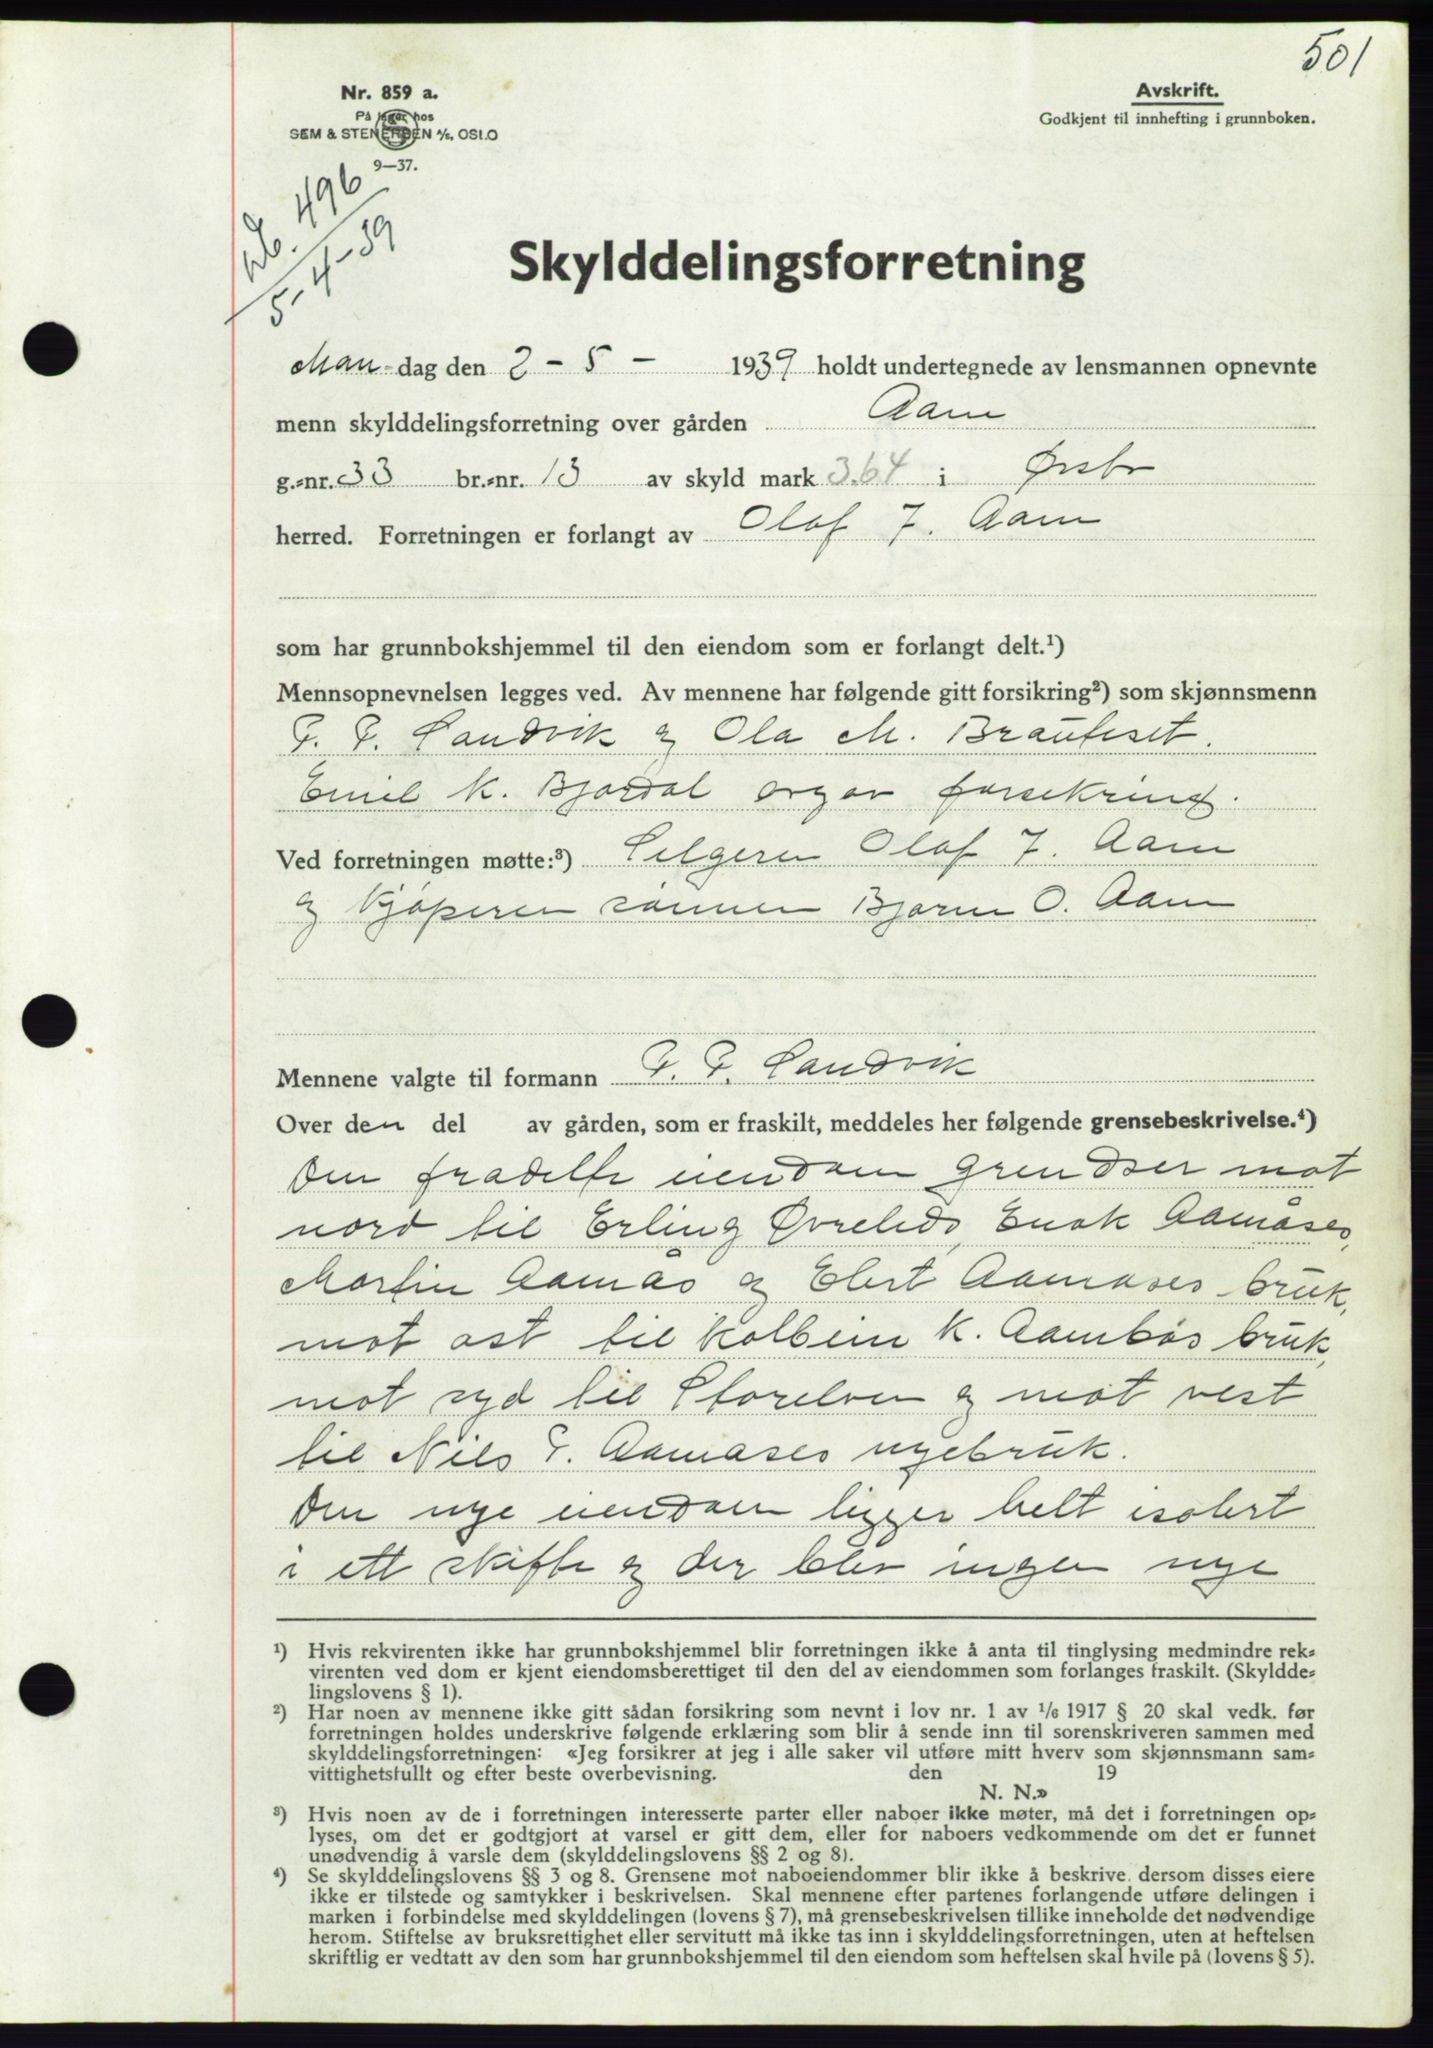 501
Nr. 859 a.
På lager hos
SEM & STENERSEN A/S, OSLO
9—37.
Avskrift.
Godkjent til innhefting i grunnboken.
nb. 496
5-4-39
Skylddelingsforretning
Man-dag den 2 - 5 - 1939 holdt undertegnede av lensmannen opnevnte
menn skylddelingsforretning over gården Aam
g.-nr. 33 br.-nr. 13 av skyld mark 3.64 i Ørsta
herred. Forretningen er forlangt av Olaf J. Aam
som har grunnbokshjemmel til den eiendom som er forlangt delt.¹)
Mennsopnevnelsen legges ved. Av mennene har følgende gitt forsikring²) som skjønnsmenn
P. P. Sandvik og Ola M. Brauteset.
Emil K. Bjørdal avgav forsekring.
Ved forretningen møtte:³) Selgeren Olaf J. Aam
og kjøperen sønnen Bjarne O. Aam
Mennene valgte til formann P. P. Sandvik
Over den del av gården, som er fraskilt, meddeles her følgende grensebeskrivelse.⁴)
Den fradelte eiendom grendser mot
nord til Erling Øvrelids, Enok Aamåses,
Martin Aamås og Elert Aamåses bruk,
mot ast til Kolbein K. Aambøs bruk,
mot syd til Storelven og mot vest
til Nils P. Aamases nyebruk.
Den nye eiendom ligger helt isolert
i ett skifte og der blev ingen nye
¹) Hvis rekvirenten ikke har grunnbokshjemmel blir forretningen ikke å anta til tinglysing medmindre rek-
virenten ved dom er kjent eiendomsberettiget til den del av eiendommen som forlanges fraskilt. (Skyldde-
lingslovens § 1).
²) Har noen av mennene ikke gitt sådan forsikring som nevnt i lov nr. 1 av 1/6 1917 § 20 skal vedk. før
forretningen holdes underskrive følgende erklæring som blir å sende inn til sorenskriveren sammen med
skylddelingsforretningen: «Jeg forsikrer at jeg i alle saker vil utføre mitt hverv som skjønnsmann sam-
vittighetsfullt og efter beste overbevisning. den 19
N. N.»
³) Hvis noen av de i forretningen interesserte parter eller naboer ikke møter, må det i forretningen op-
lyses, om det er godtgjort at varsel er gitt dem, eller for naboers vedkommende om det er funnet
unødvendig å varsle dem (skylddelingslovens §§ 2 og 8).
⁴) Se skylddelingslovens §§ 3 og 8. Grensene mot naboeiendommer blir ikke å beskrive. dersom disses eiere
ikke er tilstede og samtykker i beskrivelsen. Skal mennene efter partenes forlangende utføre delingen i
marken i forbindelse med skylddelingen (lovens § 7), må grensebeskrivelsen tillike inneholde det nødvendige
herom. Stiftelse av bruksrettighet eller servitutt må ikke tas inn i skylddelingsforretningen, uten at heftelsen
skriftlig er vedtatt av den som har grunnbokshjemmel til den eiendom som heftelsen skal hvile på (lovens § 5).